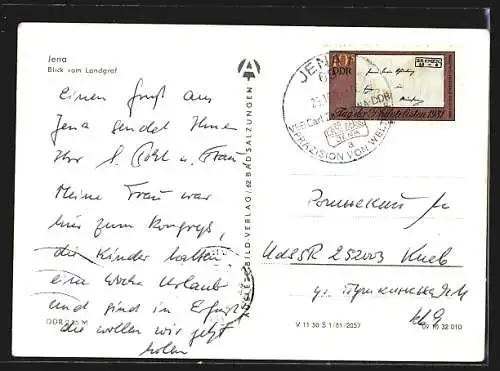 Jena
Blick vom Landgraf
Einen Gruß aus
Jena sendet Ihnen
Ihr
u. Frau
Meine Frau war
hier zum Kongreß,
die Kinder hatten
eine Woche Urlaub
und sind in Erfurt
die wollen wir jetzt
holen
AUSLESE-BILD-VERLAG / 62 BAD SALZUNGEN
JENA
Carl Z
DDR
PRÄZISION VON WEL
a
DDR
Tag der Philatelisten 1981
UdSSR 252003 Киев
ул. Пушкинская
V 11 50 S 1/81/2057
09 10 32 010